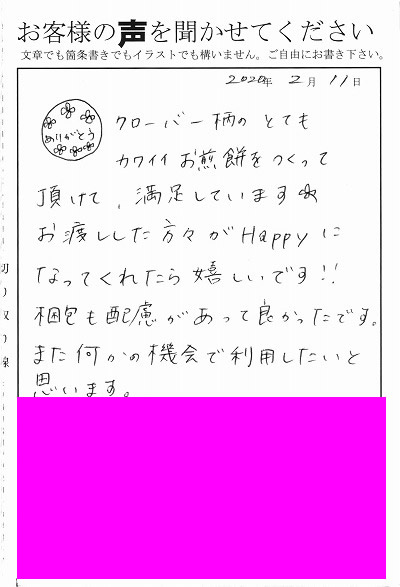 お客様の声を聞かせてください
文章でも箇条書きでもイラストでも構いません。ご自由にお書き下さい。
2020年 2月 11日
ありがとう
クローバー柄の とても
カワイイ お煎餅をつくって
頂けて、満足しています
お渡しした方々がHappyに
なってくれたら嬉しいです!!
梱包も配慮があって良かったです。
また何かの機会で利用したいと
思います。
切り取り線